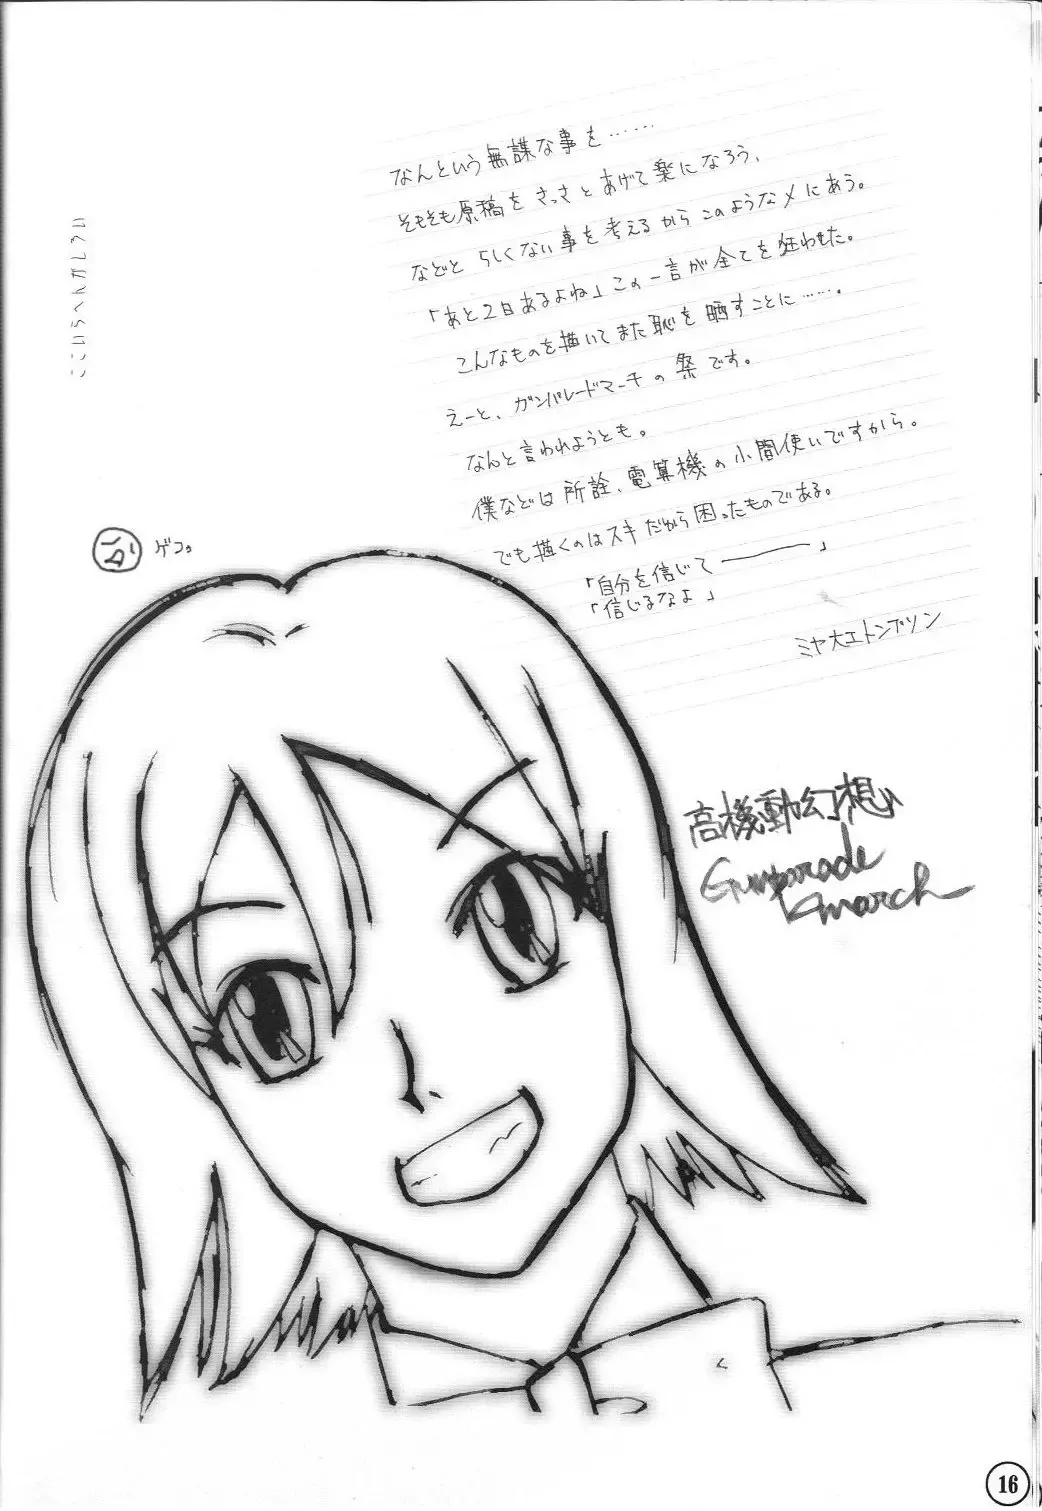 なんという無謀な事を……
そもそも原稿をさっさとあげて楽になろう、
などと らしくない事を考えるからこのようなメにあう。
「あと2日あるよね」この一言が全てを狂わせた。
こんなものを描いてまた恥を晒すことに……。
えーと、ガンパレードマーチの祭です。
なんと言われようとも。
僕などは所詮、電算機の小間使いですから。
でも描くのはスキだから困ったものである。
「自分を信じて―――」
「信じるなよ」
ミヤ大エトンプソン
ここいらへんがしろい
ゲコ。
高機動幻想
Gunparade
march
16